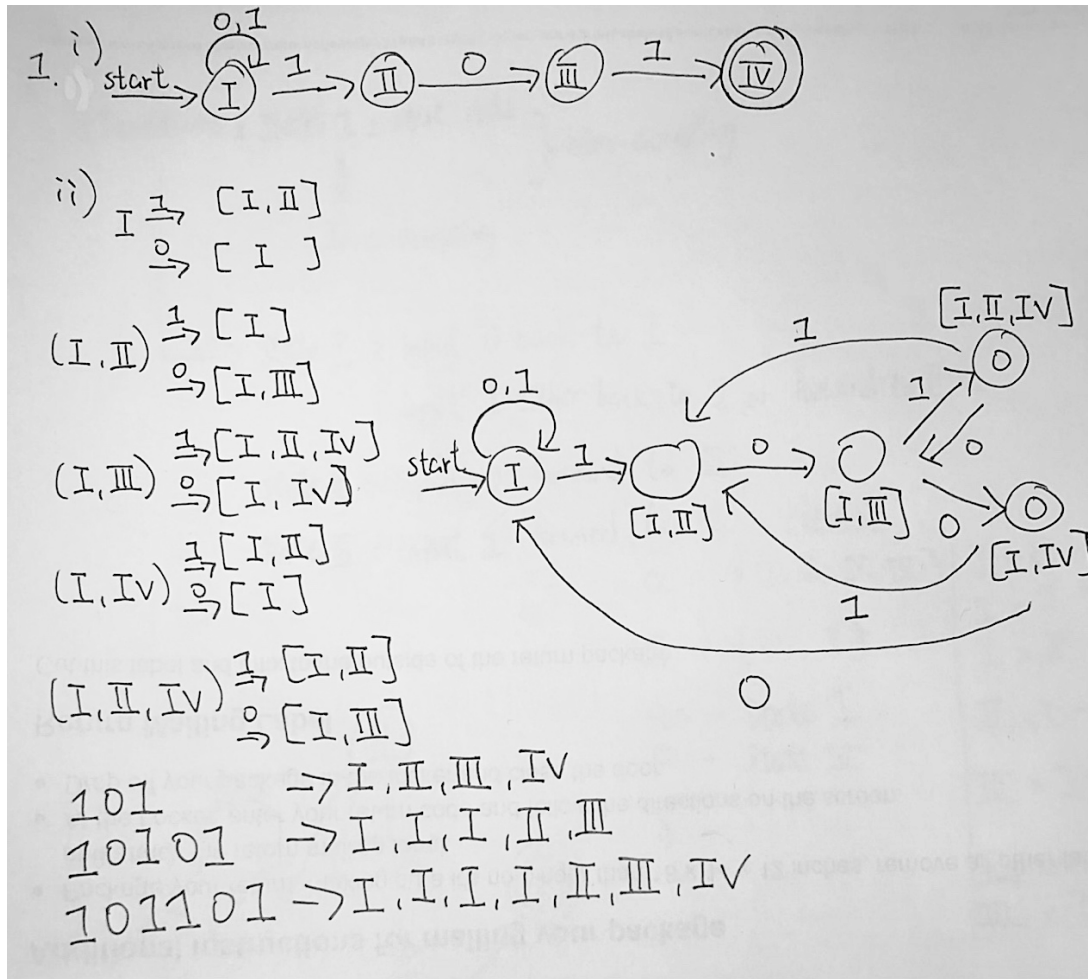 1. i)
start I 0,1 1 II 0 III 1 IV
ii)
I 1→ [I,II]
0→ [ I ]
(I,II) 1→ [I]
0→ [I,III]
(I,III) 1→ [I,II,IV]
0→ [I,IV]
(I,IV) 1→ [I,II]
0→ [I]
(I,II,IV) 1→ [I,II]
0→ [I,III]
start I 0,1 1 [I,II] 0 [I,III] 1 0 [I,II,IV] 1
0 [I,IV] 1
0
101 → I,II,III,IV
10101 → I,I,I,II,III
101101 → I,I,I,I,II,III,IV